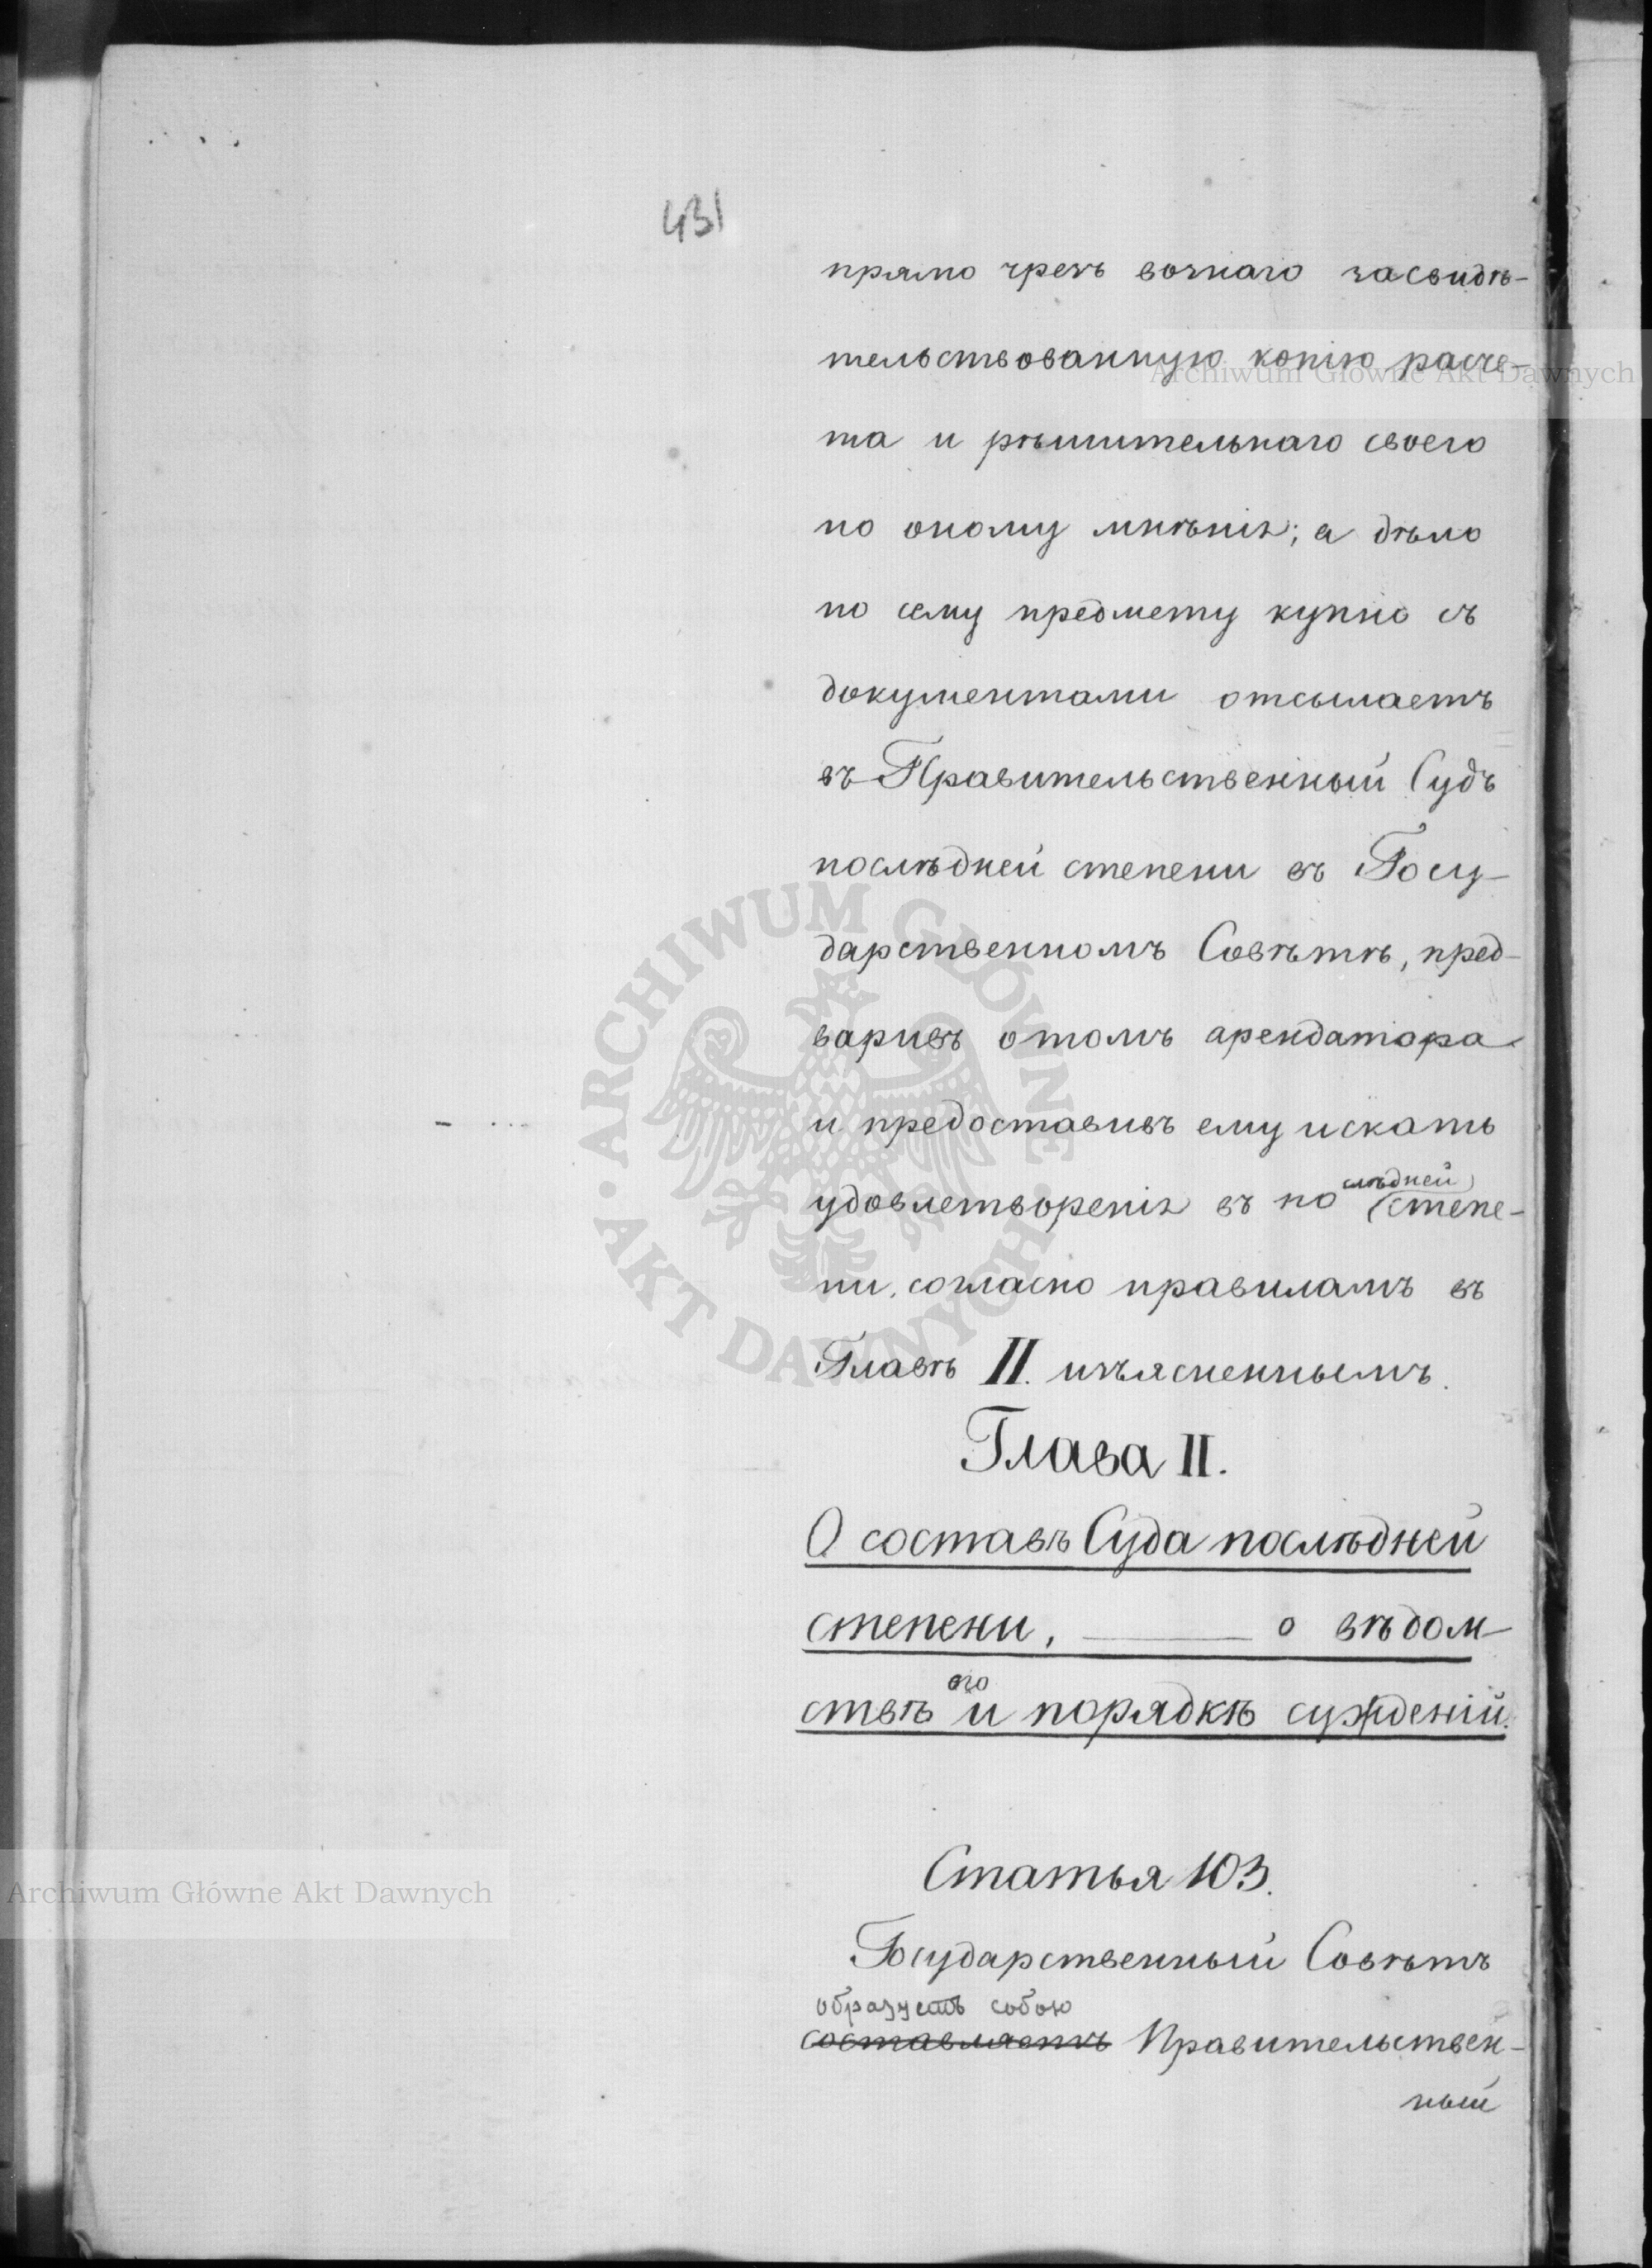 431
прямо чрезъ вознаго засвидѣ-
тельствованную копію расче-
та и рѣшительнаго своего
по оному мнѣнія; а дѣло
по сему предмету купно съ
документами отсылаетъ
въ Правительственный Судъ
послѣдней степени въ Госу-
дарственномъ Совѣтѣ, пред-
варивъ о томъ арендатора
и предоставивъ ему искать
удовлетворенія въ по слѣдней степе-
ни, согласно правиламъ въ
Главѣ II. изъясненнымъ.
Глава II.
О составѣ Суда послѣдней
степени, о вѣдом-
ствѣ его и порядкѣ сужденій.
Статья 103.
Государственный Совѣтъ
образуетъ собою
составляетъ Правительствен-
ный
Archiwum Główne Akt Dawnych
ARCHIWUM GŁÓWNE AKT DAWNYCH
Archiwum Główne Akt Dawnych